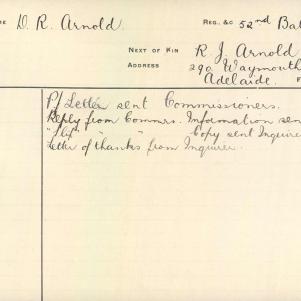 ME D. R. Arnold. REG. &C 52nd Bat
NEXT OF KIN R. J. Arnold
ADDRESS 290 Waymouth
Adelaide. F
P/ Letter sent Commissioners.
Reply from Commrs. Information sen
" Slip " " Copy sent Inquire
Letter of thanks from Inquirer.